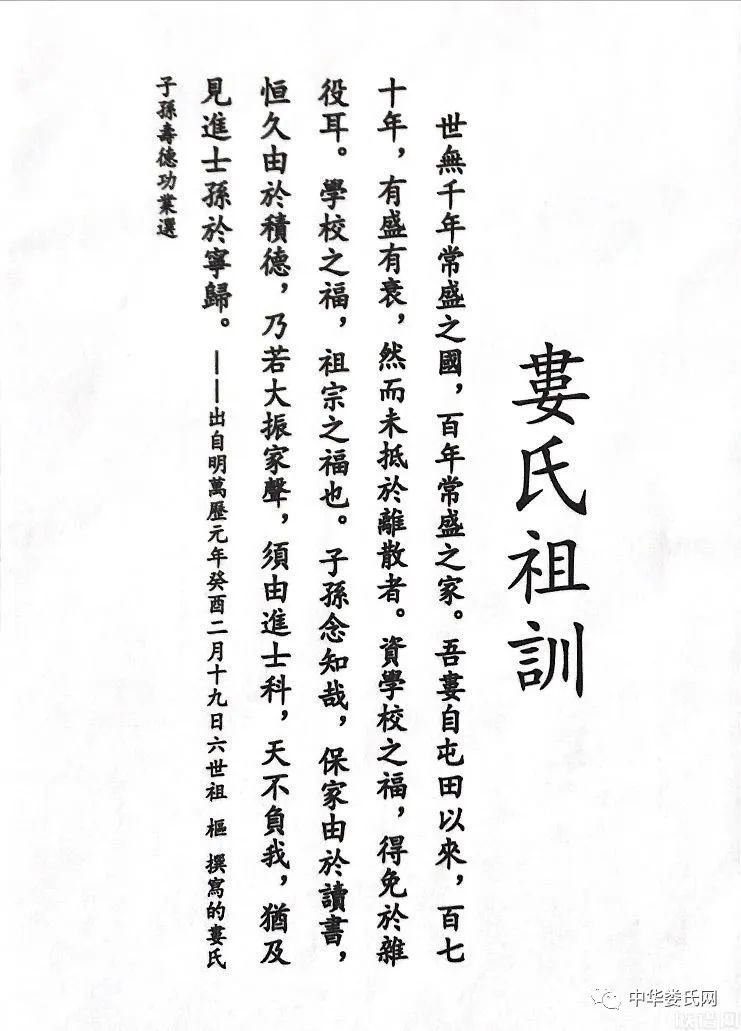 婁氏祖訓
世無千年常盛之國，百年常盛之家。吾婁自屯田以來，百七
十年，有盛有衰，然而未抵於離散者。資學校之福，得免於雜
役耳。學校之福，祖宗之福也。子孫念知哉，保家由於讀書，
恒久由於積德，乃若大振家聲，須由進士科，天不負我，猶及
見進士孫於寧歸。——出自明萬歷元年癸酉二月十九日六世祖 樞 撰寫的婁氏
子孫壽德功業選
中华娄氏网